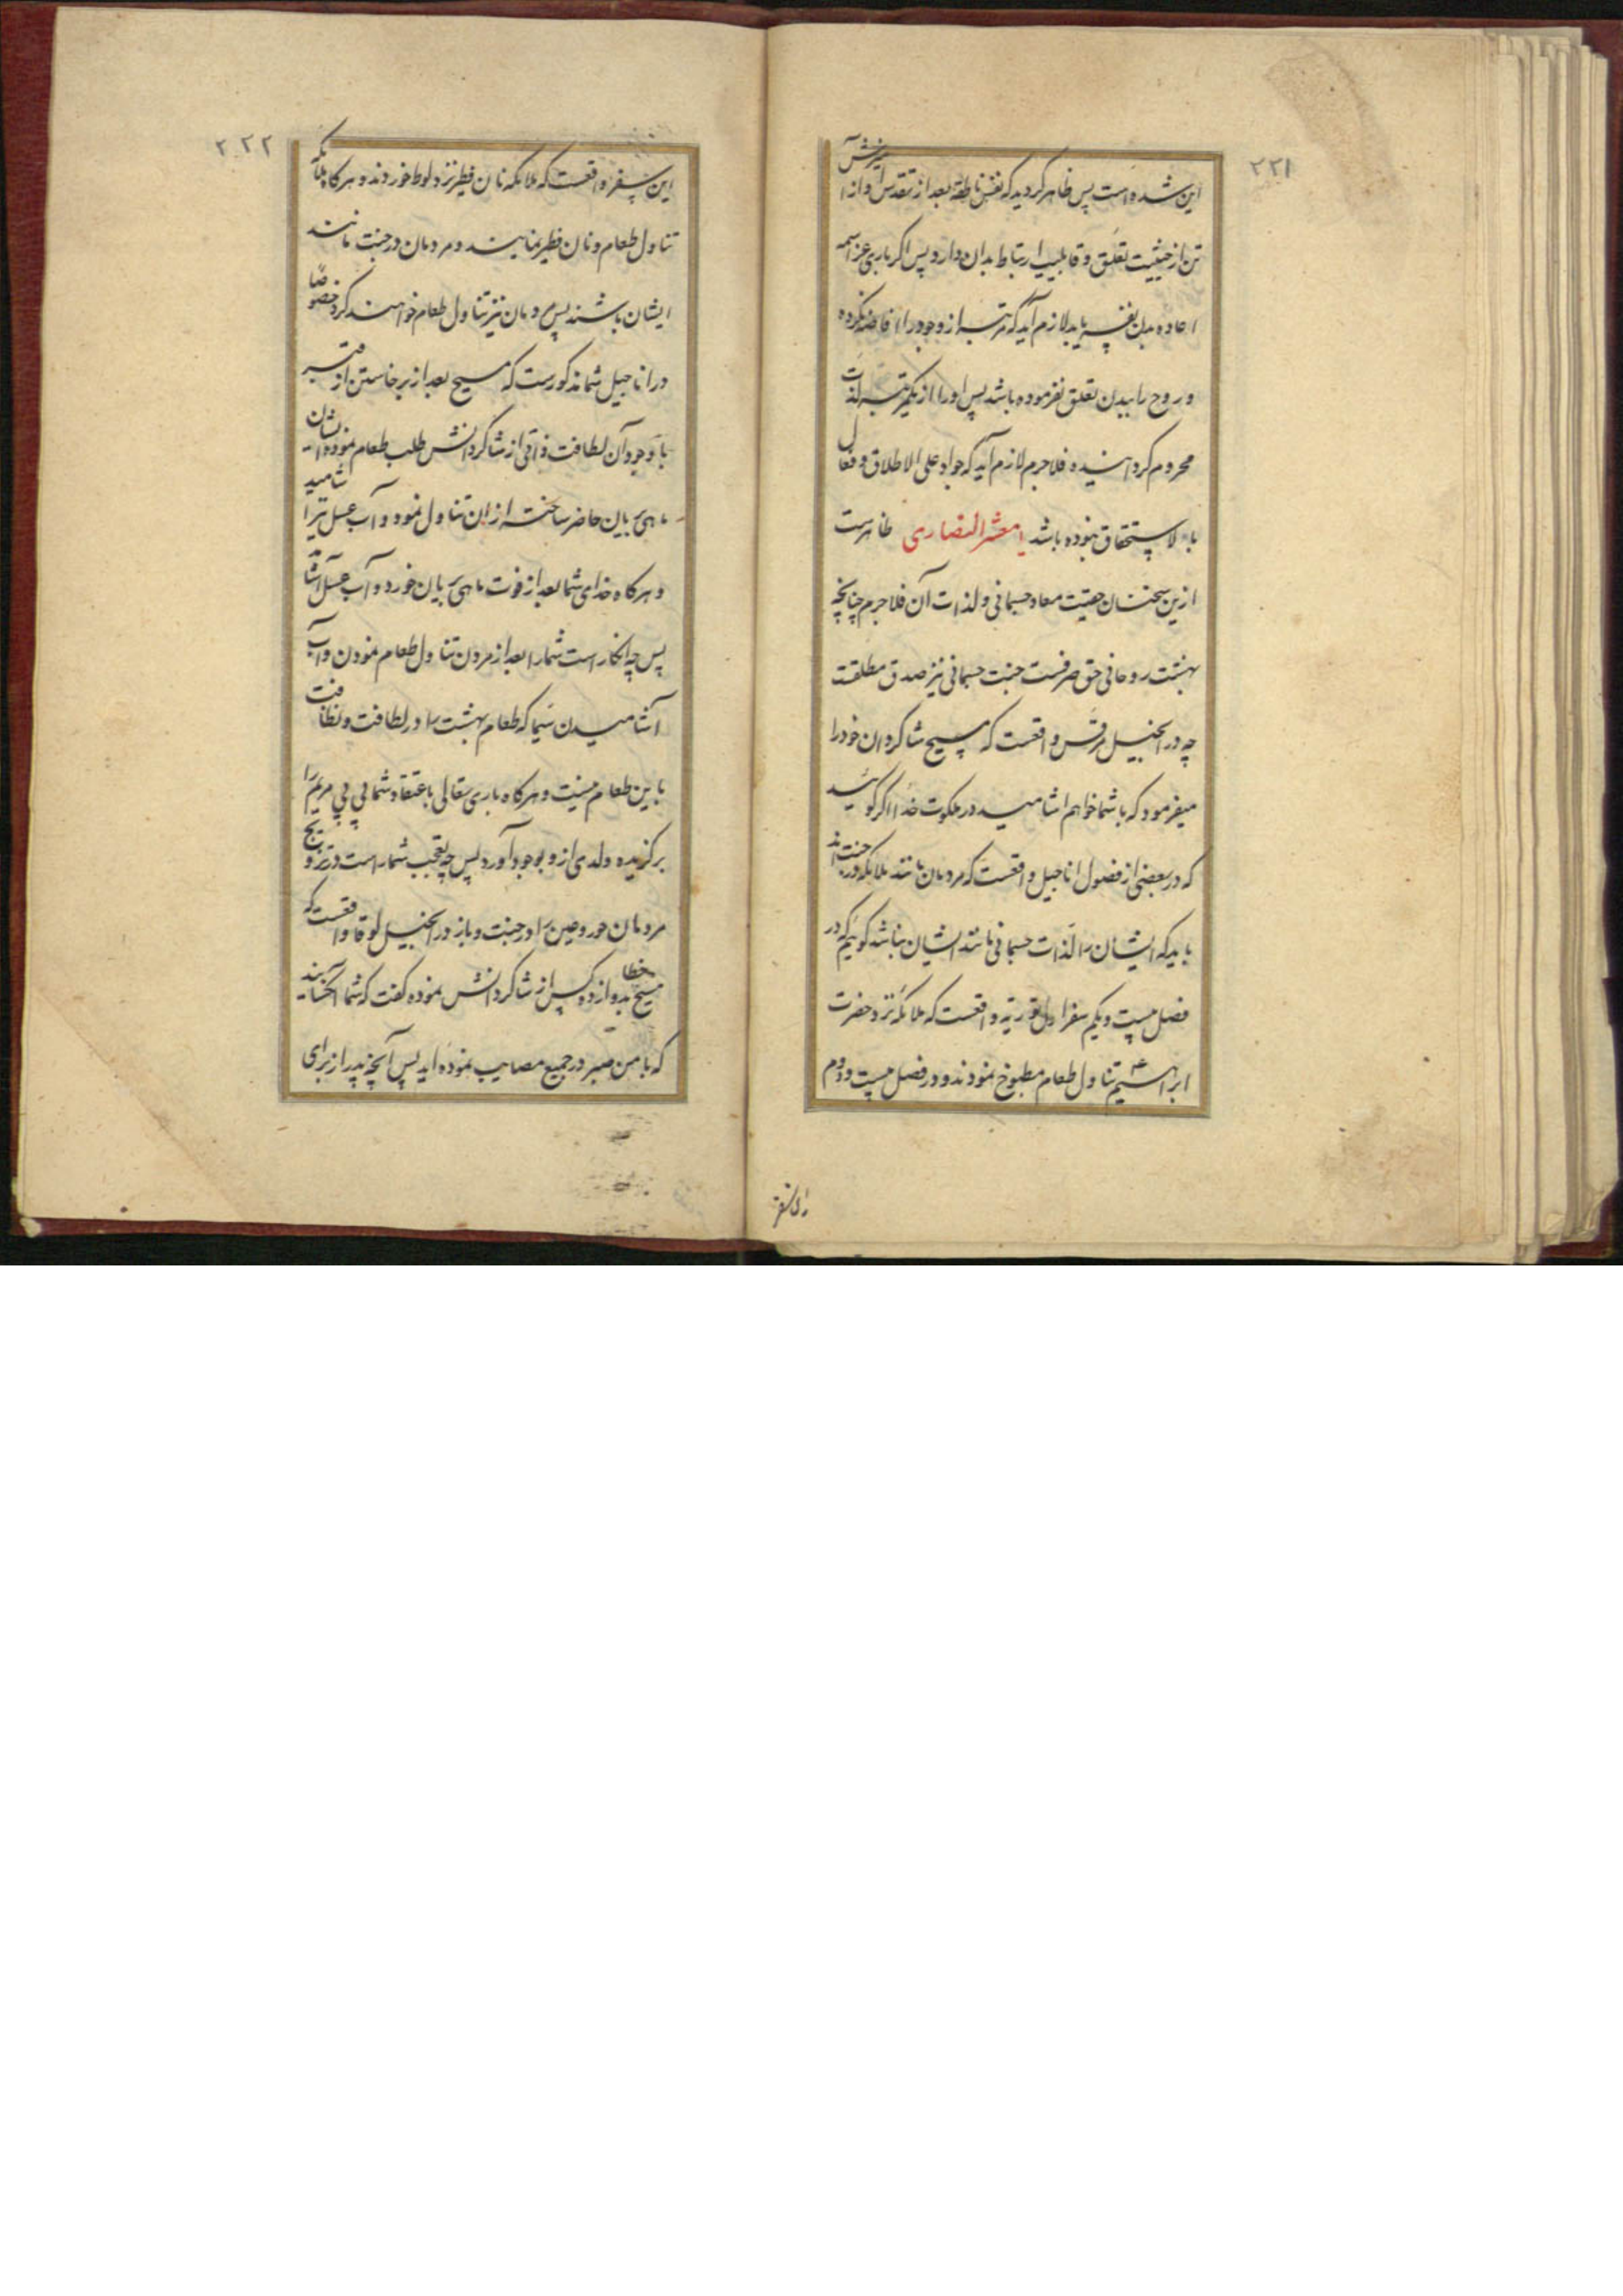 ۲۲۱
این شده است پس ظاهر گردید که نفس ناطقه بعد از تقدس و از آمیزش
تن از حیثیت تعلق و قابلیت ارتباط بدان دارد پس اگر باری عز اسمه
اعاده بدن بفرماید لازم آید که مرتبه از وجود را افاضه نکرده
و روح را ببدن تعلق نفرموده باشد پس او را از یکمرتبه لذات
محروم گردانیده فلاجرم لازم آید که جواد علی الاطلاق و فعال
بالاستحقاق نبوده باشد یا معشر النصاری ظاهرست
ازین سخنان حقیت معاد جسمانی و لذات آن فلاجرم چنانچه
بهشت روحانی حق صرفست جنت جسمانی نیز صدق مطلقست
چه در انجیل مرقس واقعست که مسیح شاگردان خود را
میفرمود که با شما خواهم اشامید در ملکوت خدا اگر گوئید
که در بعضی از فصول اناجیل واقعست که مردمان مانند ملائکه در جنت اند
باید که ایشان را لذات جسمانی مانند ایشان نباشد گوئیم که در
فصل بیست و یکم سفر اول توریة واقعست که ملائکه نزد حضرت
ابراهیم ع تناول طعام مطبوخ نمودند و در فصل بیست و دوم
۲۲۲
این سفر واقعست که ملائکه نان فطیر نزد لوط خوردند و هرگاه ملائکه
تناول طعام و نان فطیر نمایند و مردمان در جنت مانند
ایشان باشند پس مردمان نیز تناول طعام خواهند کرد خصوصا
در اناجیل شما مذکورست که مسیح بعد از برخاستن از قبر
با وجود آن لطافت ذاتی از شاگردانش طلب طعام نموده ایشان
ماهی بریان حاضر ساخته از ان تناول نمود و آب عسل نیز آشامید
و هرگاه خدای شما بعد از فوت ماهی بریان خورد و آب عسل آشامد
پس چه انکار است شما را بعد از مردن تناول طعام نمودن و آب
آشامیدن سیما که طعام بهشت را در لطافت و نظافت
باین طعام نسبت و هرگاه باری تعالی باعتقاد شما بی بی مریم را
برگزیده ولدی از و بوجود آورد پس چه تعجب شما راست در تزویج
مردمان حور و عین را در جنت و باز در انجیل لوقا واقعست که
مسیح خطاب بدوازده کس از شاگردانش نموده گفت که شما آنکسانید
که با من صبر در جمیع مصایب نموده اید پس آنچه پدر از برای